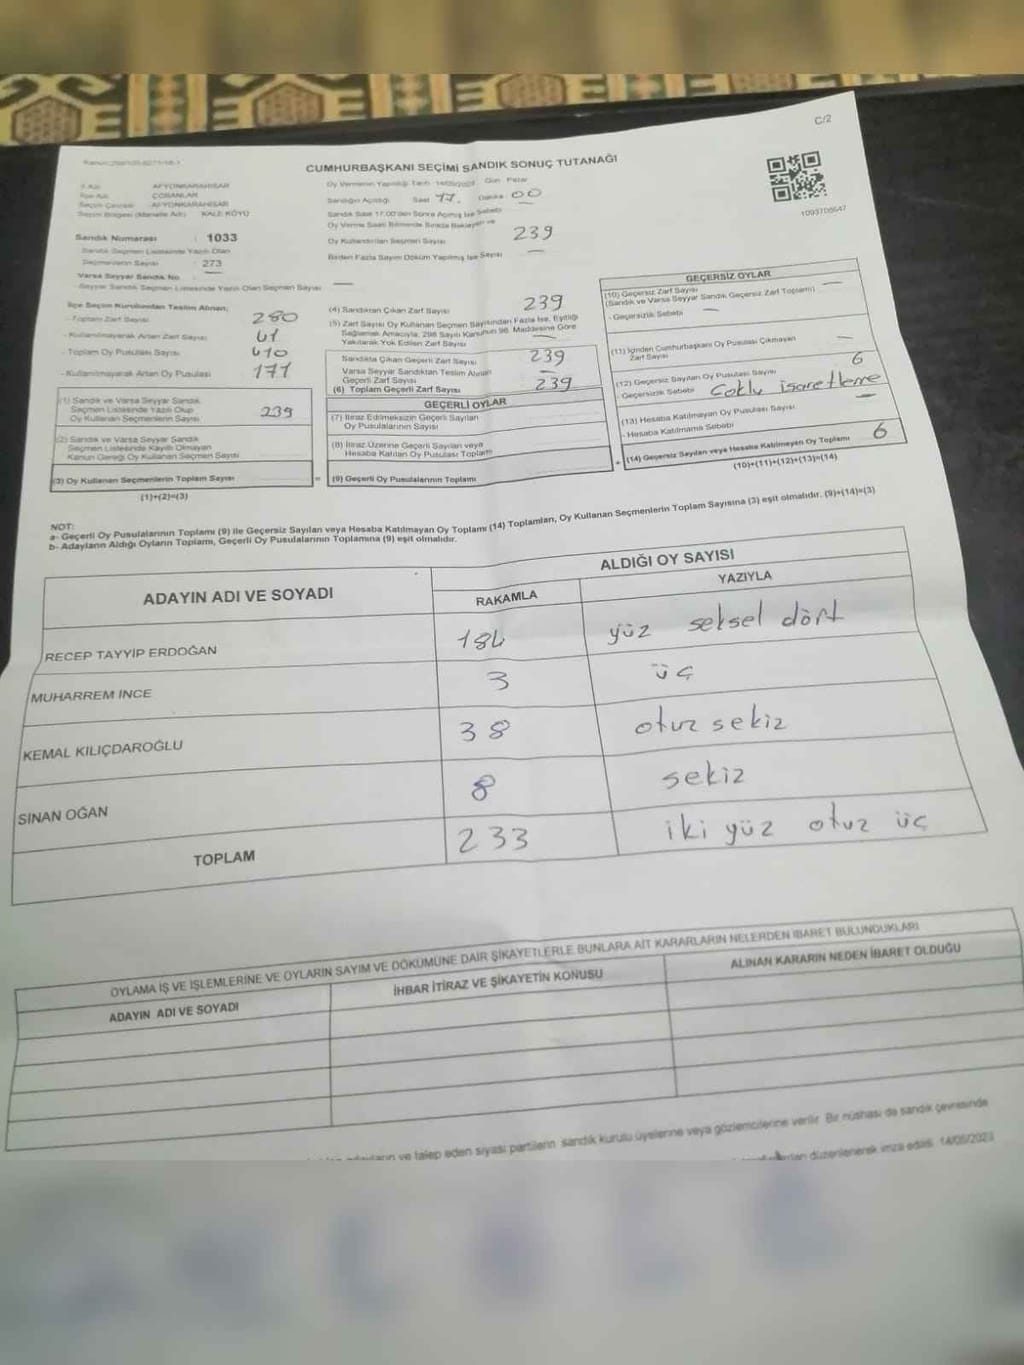 C/2
CUMHURBAŞKANI SEÇİMİ SANDIK SONUÇ TUTANAĞI
1093706647
İl Adı : AFYONKARAHİSAR
İlçe Adı : ÇOBANLAR
Seçim Çevresi : AFYONKARAHİSAR
Seçim Bölgesi (Mahalle Adı) : KALE KÖYÜ
Sandık Numarası : 1033
Sandık Seçmen Listesinde Yazılı Olan
Seçmenlerin Sayısı : 273
Varsa Seyyar Sandık No
-Seyyar Sandık Seçmen Listesinde Yazılı Olan Seçmen Sayısı —
Oy Vermenin Yapıldığı Tarih 14/05/2023 Gün Pazar
Sandığın Açıldığı Saat 17. Dakika 00
Sandık Saat 17:00'den Sonra Açılmış İse Sebebi —
Oy Verme Saati Bitiminde Sırada Bekleyen ve
Oy Kullandırılan Seçmen Sayısı 239
Birden Fazla Sayım Döküm Yapılmış İse Sayısı —
İlçe Seçim Kurulundan Teslim Alınan;
- Toplam Zarf Sayısı 280
- Kullanılmayarak Artan Zarf Sayısı 41
- Toplam Oy Pusulası Sayısı 410
- Kullanılmayarak Artan Oy Pusulası 171
(1) Sandık ve Varsa Seyyar Sandık
Seçmen Listesinde Yazılı Olup
Oy Kullanan Seçmenlerin Sayısı 239
(2) Sandık ve Varsa Seyyar Sandık
Seçmen Listesinde Kayıtlı Olmayan
Kanun Gereği Oy Kullanan Seçmen Sayısı
(3) Oy Kullanan Seçmenlerin Toplam Sayısı
(1)+(2)=(3)
(4) Sandıktan Çıkan Zarf Sayısı 239
(5) Zarf Sayısı Oy Kullanan Seçmen Sayısından Fazla İse, Eşitliği
Sağlamak Amacıyla, 298 Sayılı Kanunun 98. Maddesine Göre
Yakılarak Yok Edilen Zarf Sayısı —
Sandıkta Çıkan Geçerli Zarf Sayısı 239
Varsa Seyyar Sandıktan Teslim Alınan
Geçerli Zarf Sayısı —
(6) Toplam Geçerli Zarf Sayısı 239
GEÇERLİ OYLAR
(7) İtiraz Edilmeksizin Geçerli Sayılan
Oy Pusulalarının Sayısı
(8) İtiraz Üzerine Geçerli Sayılan veya
Hesaba Katılan Oy Pusulası Toplamı
= (9) Geçerli Oy Pusulalarının Toplamı
GEÇERSİZ OYLAR
(10) Geçersiz Zarf Sayısı
(Sandık ve Varsa Seyyar Sandık Geçersiz Zarf Toplamı) —
- Geçersizlik Sebebi —
(11) İçinden Cumhurbaşkanı Oy Pusulası Çıkmayan
Zarf Sayısı —
(12) Geçersiz Sayılan Oy Pusulası Sayısı 6
- Geçersizlik Sebebi Çoklu işaretleme
(13) Hesaba Katılmayan Oy Pusulası Sayısı —
- Hesaba Katılmama Sebebi
+ (14) Geçersiz Sayılan veya Hesaba Katılmayan Oy Toplamı 6
(10)+(11)+(12)+(13)=(14)
NOT:
a- Geçerli Oy Pusulalarının Toplamı (9) ile Geçersiz Sayılan veya Hesaba Katılmayan Oy Toplamı (14) Toplamları, Oy Kullanan Seçmenlerin Toplam Sayısına (3) eşit olmalıdır. (9)+(14)=(3)
b- Adayların Aldığı Oyların Toplamı, Geçerli Oy Pusulalarının Toplamına (9) eşit olmalıdır.
ADAYIN ADI VE SOYADI
ALDIĞI OY SAYISI
RAKAMLA YAZIYLA
RECEP TAYYİP ERDOĞAN 184 yüz seksel dört
MUHARREM İNCE 3 üç
KEMAL KILIÇDAROĞLU 38 otuz sekiz
SİNAN OĞAN 8 sekiz
TOPLAM 233 iki yüz otuz üç
OYLAMA İŞ VE İŞLEMLERİNE VE OYLARIN SAYIM VE DÖKÜMÜNE DAİR ŞİKAYETLERLE BUNLARA AİT KARARLARIN NELERDEN İBARET BULUNDUKLARI
ADAYIN ADI VE SOYADI İHBAR İTİRAZ VE ŞİKAYETİN KONUSU ALINAN KARARIN NEDEN İBARET OLDUĞU
adayların ve talep eden siyasi partilerin sandık kurulu üyelerine veya gözlemcilerine verilir. Bir nüshası da sandık çevresinde
düzenlenerek imza edildi. 14/05/2023